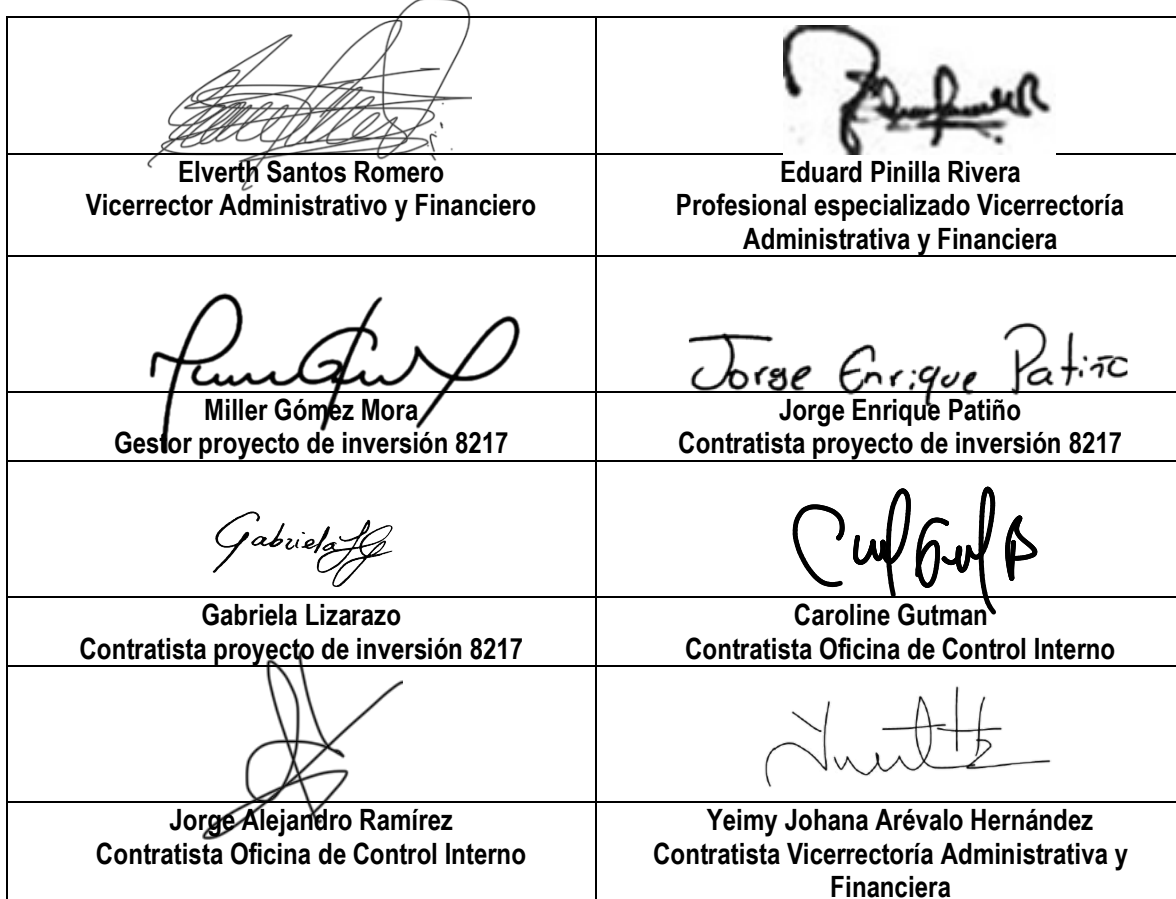 Elverth Santos Romero
Vicerrector Administrativo y Financiero
Eduard Pinilla Rivera
Profesional especializado Vicerrectoría
Administrativa y Financiera
Miller Gómez Mora
Gestor proyecto de inversión 8217
Jorge Enrique Patiño
Jorge Enrique Patiño
Contratista proyecto de inversión 8217
Gabriela
Gabriela Lizarazo
Contratista proyecto de inversión 8217
Caroline Gutman
Contratista Oficina de Control Interno
Jorge Alejandro Ramírez
Contratista Oficina de Control Interno
Yeimy Johana Arévalo Hernández
Contratista Vicerrectoría Administrativa y
Financiera